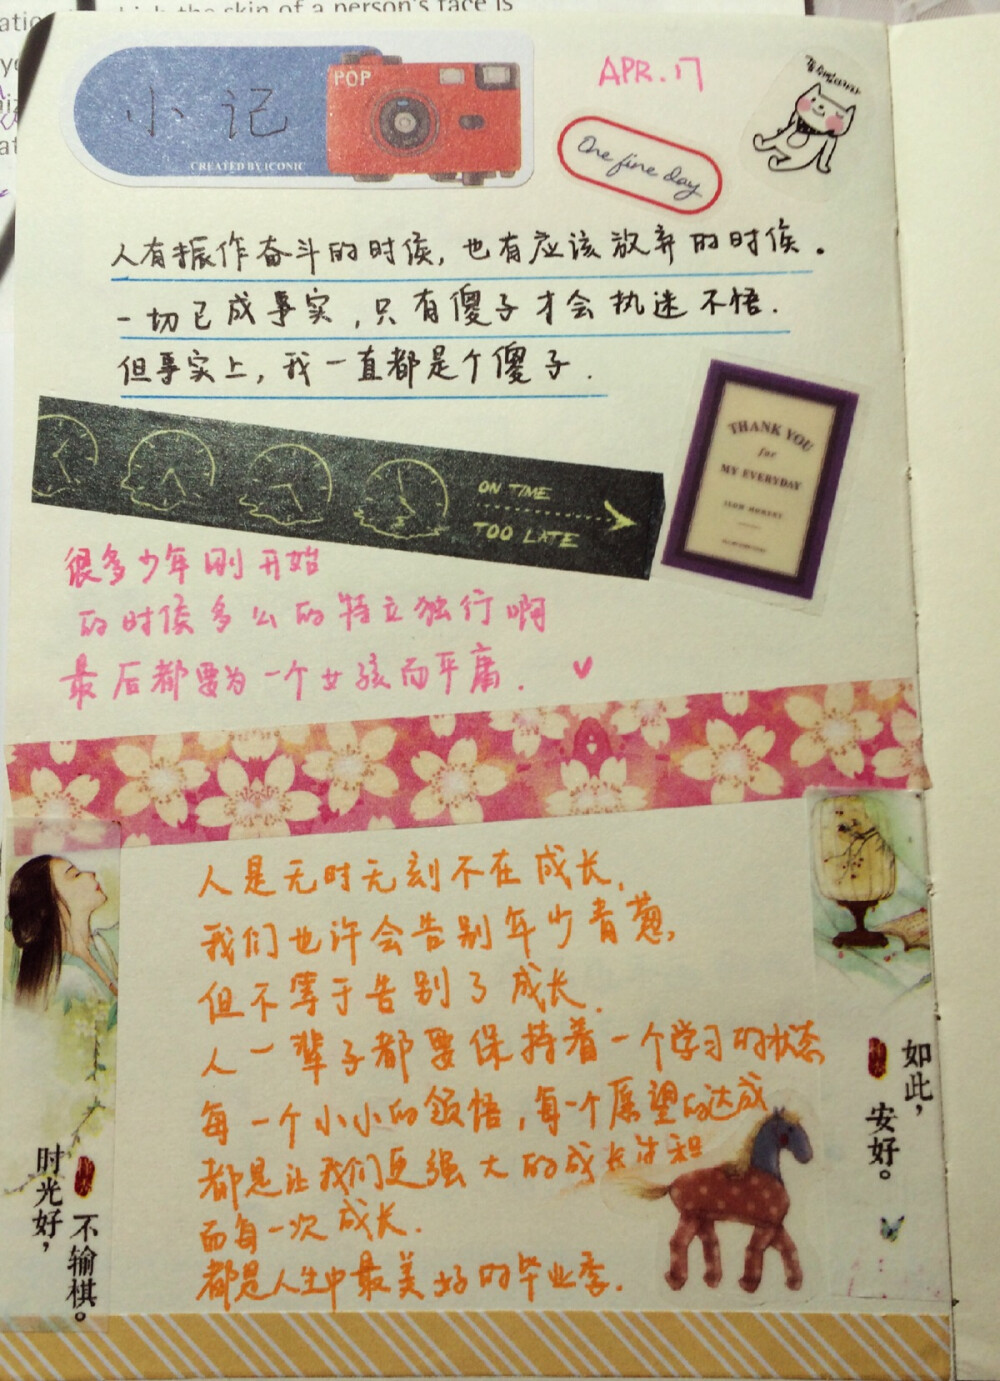 which the skin of a person's face is
小记
POP
CREATED BY ICONIC
APR.17
One fine day
人有振作奋斗的时候，也有应该放弃的时候。
一切已成事实，只有傻子才会执迷不悟.
但事实上，我一直都是个傻子.
ON TIME
TOO LATE
THANK YOU
for
MY EVERYDAY
很多少年刚开始
的时候多么的特立独行啊
最后都要为一个女孩而平庸.
人是无时无刻不在成长，
我们也许会告别年少青葱，
但不等于告别了成长.
人一辈子都要保持着一个学习的状态
每一个小小的领悟，每一个愿望的达成
都是让我们更强大的成长过程
而每一次成长.
都是人生中最美好的毕业季.
时光好，
不输棋。
如此，
安好。